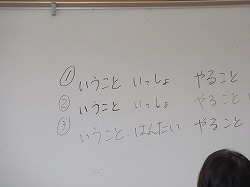 ① いうこと いっしょ やること
② いうこと いっしょ やること
③ いうこと はんたい やること